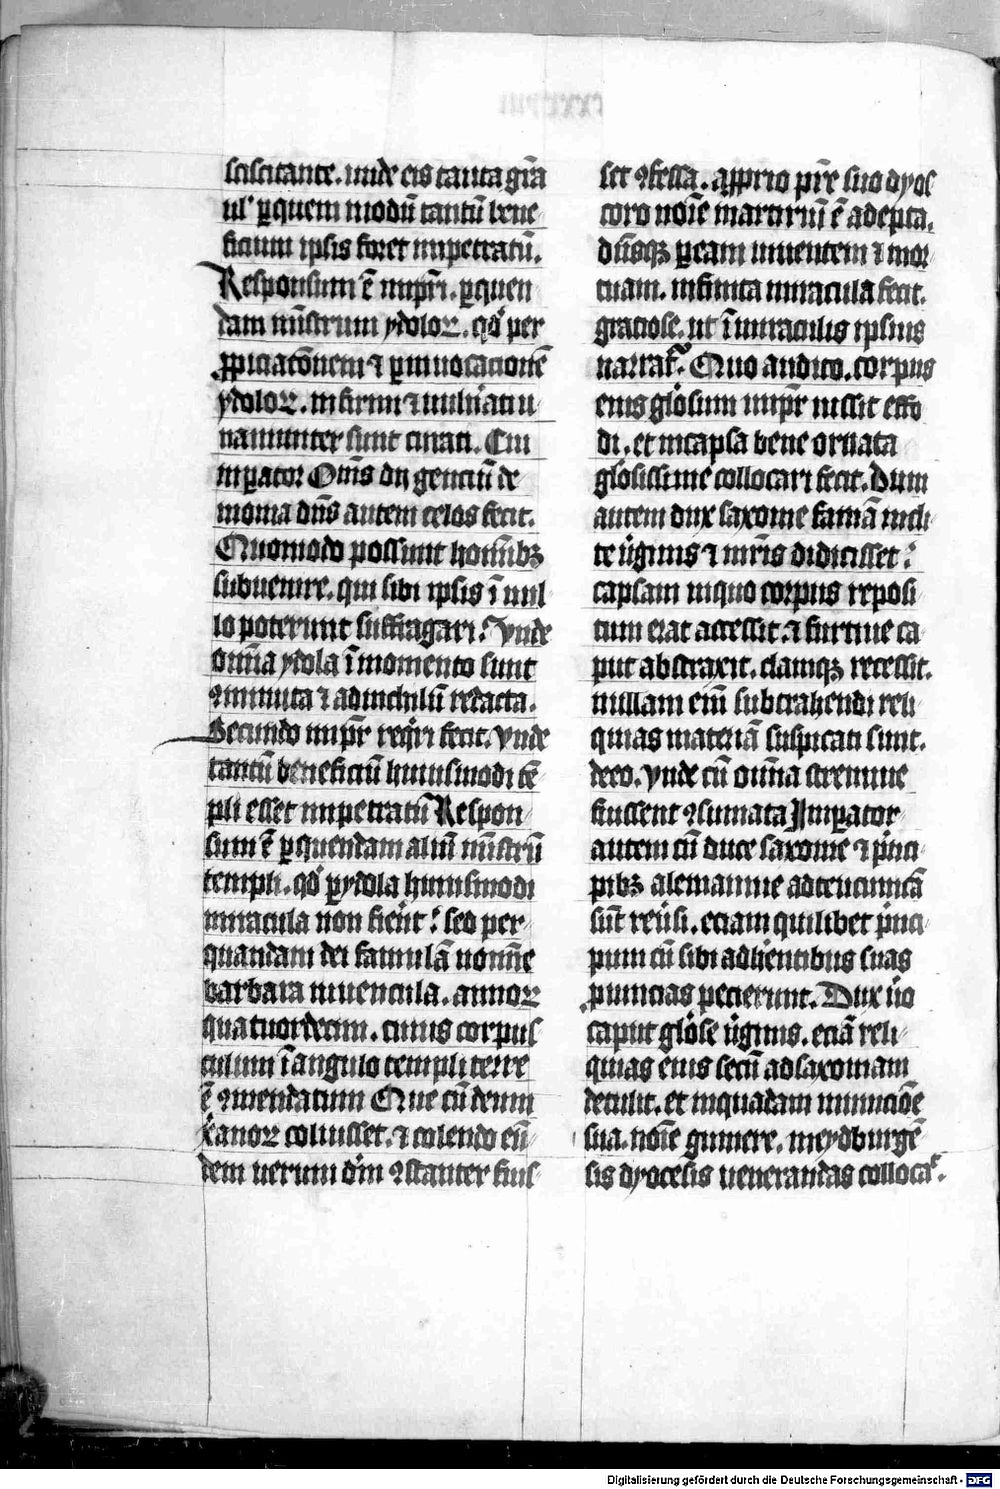 sciscitante. unde eis tanta gr̄a
ul' ꝑquem modū tantū bene-
ficium ipsis foret impetratū.
Responsum ē impr̄i. ꝑquen
dam mīstrum ydoloꝝ. qd' per
ꝓpiciatōnem ⁊ ꝑinuocationē
ydoloꝝ. infirmi ⁊ uuln'ati u-
nanimiter sunt curati. Cui
inꝑator Om̄s dij genciū de
monia dn̄s autem celos fecit.
Quomodo possunt hom̄ibꝫ
subuenire. qui sibi ipsis ī nul-
lo poterunt suffragari. Vnde
om̄ia ydola ī momento sunt
ꝯminuta ⁊ adinchilū redacta.
Secundo impr̄ req'ri fecit. Vnde
tantū beneficiū huiusmodi tē
pli esset impetratū Respon-
sum ē ꝑquendam aliū mīstrū
templi. qd' ꝑydola huiusmodi
miracula non fient. sed per-
quandam dei famulā nomīe
barbara iuuencula. annoꝝ
quatuordecim. cuius corpus
culum ī angulo templi terre
ē ꝯmendatum Que cū deum
xanoꝝ coluisset. ⁊ colendo eū-
dem uerum dm̄ ꝯstanter fuis-
set ꝯfessa. aꝓprio pr̄e suo dyos
coro noīe martiriū ē adepta.
dn̄usqꝫ ꝑeam uiuentem ⁊ mor
tuam. infinita miracula fecit.
graciose. ut ī miraculis ipsius
narrat'. Quo audito. corpus
eius gl'osum impr̄ iussit effo
di. et incapsa bene ornata
gl'osissime collocari fecit. Dum
autem dux saxonie famā incli-
te u'ginis ⁊ mr̄is didicisset.
capsam inquo corpus reposi-
tum erat accessit. ⁊ furtiue ca
put abstraxit. clamqꝫ recessit.
nullam em̄ subtrahendi reli
quias materiā suspicati sunt.
deeo. Vnde cū om̄ia strennue
fuissent ꝯsumata Imꝑator
autem cū duce saxonie ⁊ p'nci-
pibꝫ alemannie
sūt reu'si. eciam quilibet p'nci-
pum cū sibi adh'entibus suas
ꝓuincias pecierunt. Dux u'o
caput gl'ose u'ginis. eciā reli-
quias eius secū adsaxoniam
detulit. et inquadam municōe
sua. noīe gumere. meydburgē
sis dyocesis uenerandas collocat'.
Digitalisierung gefördert durch die Deutsche Forschungsgemeinschaft - DFG